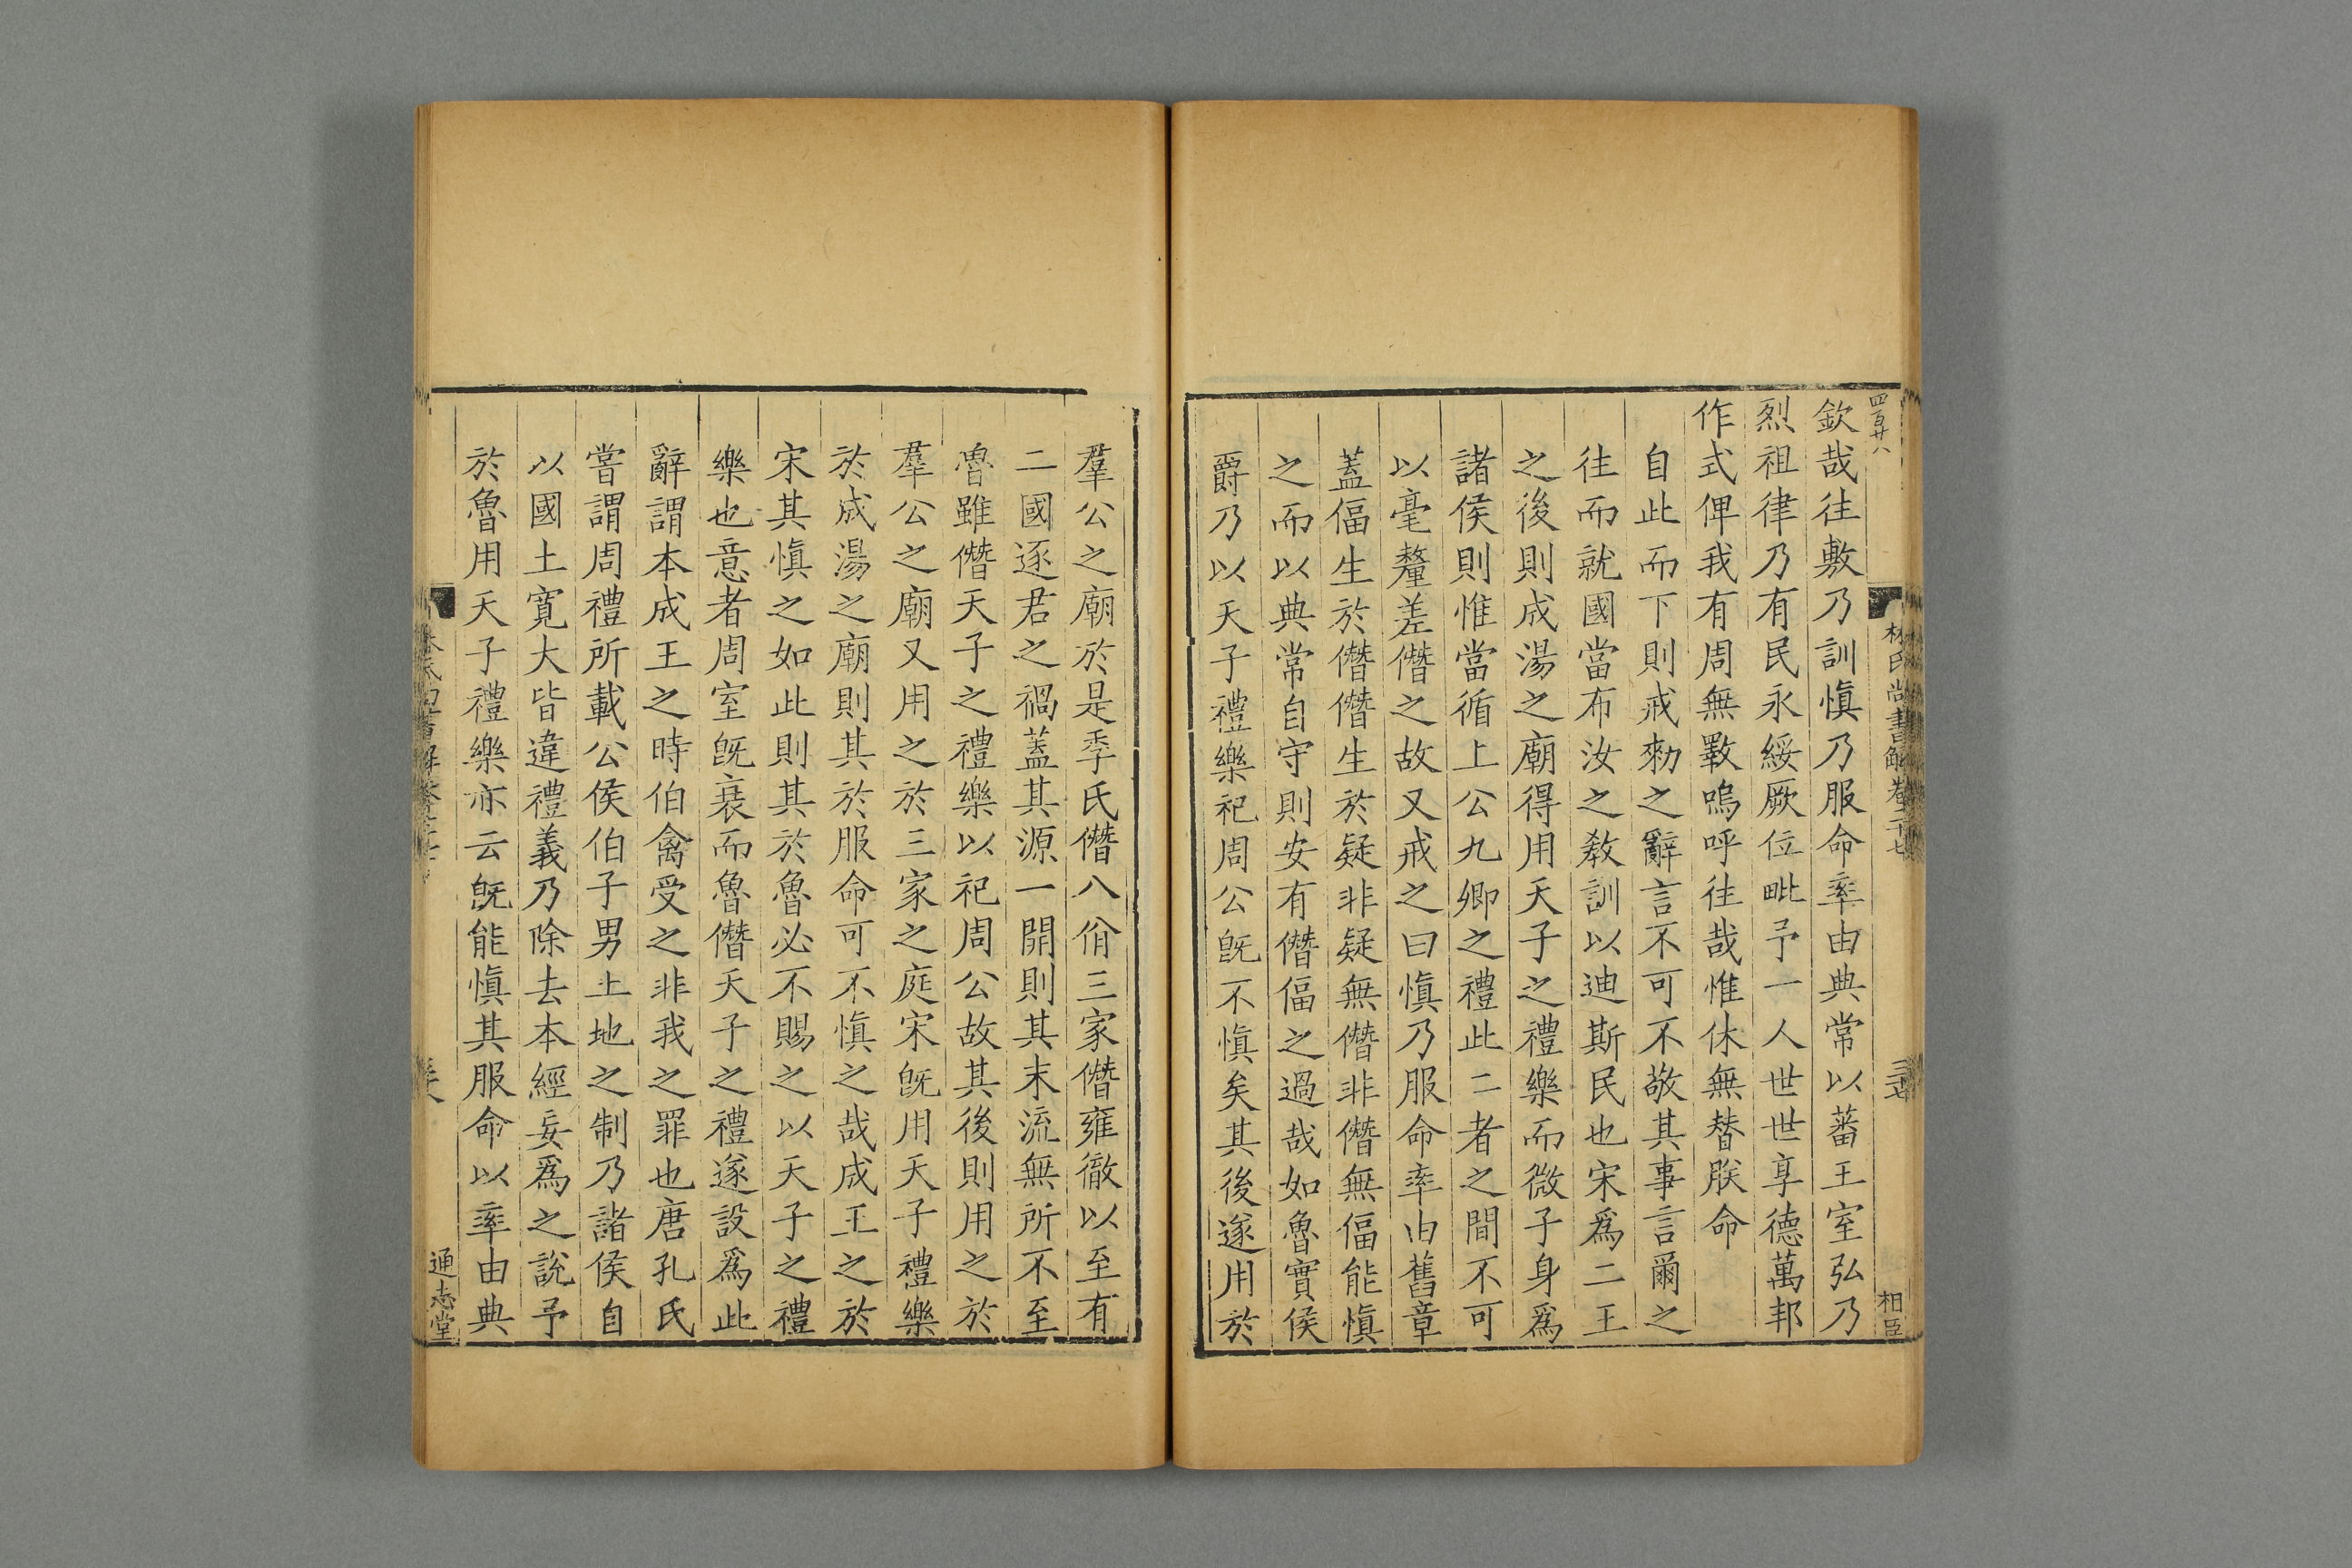 四百廿八
林氏尚書解卷二十七
三十七
相臣
欽哉往敷乃訓慎乃服命率由典常以蕃王室弘乃
烈祖律乃有民永綏厥位毗予一人世世享德萬邦
作式俾我有周無斁嗚呼往哉惟休無替朕命
自此而下則戒勑之辭言不可不敬其事言爾之
往而就國當布汝之敎訓以迪斯民也宋爲二王
之後則成湯之廟得用天子之禮樂而微子身爲
諸侯則惟當循上公九卿之禮此二者之間不可
以毫釐差僭之故又戒之曰慎乃服命率由舊章
蓋偪生於僭僭生於疑非疑無僭非僭無偪能慎
之而以典常自守則安有僭偪之過哉如魯實侯
爵乃以天子禮樂祀周公旣不慎矣其後遂用於
羣公之廟於是季氏僭八佾三家僭雍徹以至有
二國逐君之禍蓋其源一開則其末流無所不至
魯雖僭天子之禮樂以祀周公故其後則用之於
羣公之廟又用之於三家之庭宋旣用天子禮樂
於成湯之廟則其於服命可不慎之哉成王之於
宋其慎之如此則其於魯必不賜之以天子之禮
樂也意者周室旣衰而魯僭天子之禮遂設爲此
辭謂本成王之時伯禽受之非我之罪也唐孔氏
嘗謂周禮所載公侯伯子男土地之制乃諸侯自
以國土寛大皆違禮義乃除去本經妄爲之說予
於魯用天子禮樂亦云旣能慎其服命以率由典
通志堂